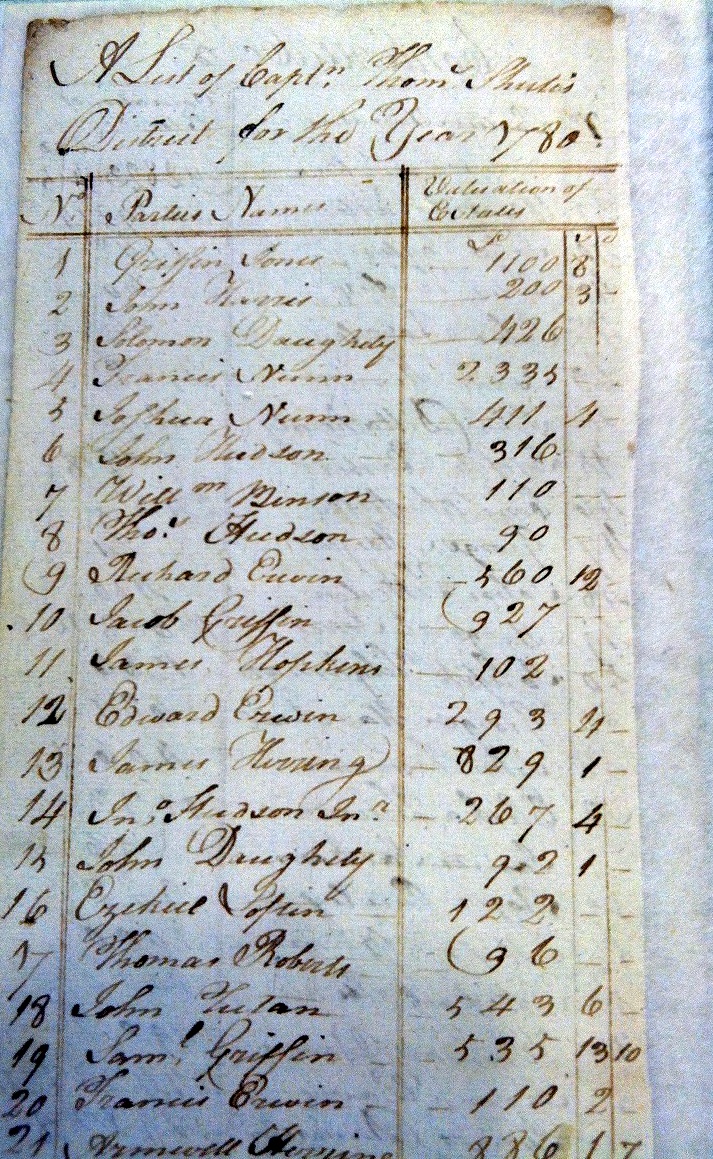 A List of Capt.n Thom.s
District for the Year 1780
No. Parties Names Valuation of
Estates
£ s d
1 Griffin Jones 1100 8
2 John Harris 200 3 -
3 Solomon Daughety 426
4 Francis Nunn 2335 -
5 Joshua Nunn 411 4 -
6 John Hudson - 316
7 Will.m Binson 110 - -
8 Tho.s Hudson 90 -
9 Richard Erwin - 560 12 -
10 Jacob Griffin - 927
11 James Hopkins - 102
12 Edward Erwin 293 4 -
13 James Herring - 829 1 -
14 Jno. Hudson Jnr. - 267 4 -
15 John Daughety - 92 1 -
16 Ezekiel Loftin 122 - -
17 Thomas Roberts - 96 - -
18 John 543 6 -
19 Sam.l Griffin - 535 13 10
20 Francis Erwin - 110 2 -
21 Herring 886 1 7